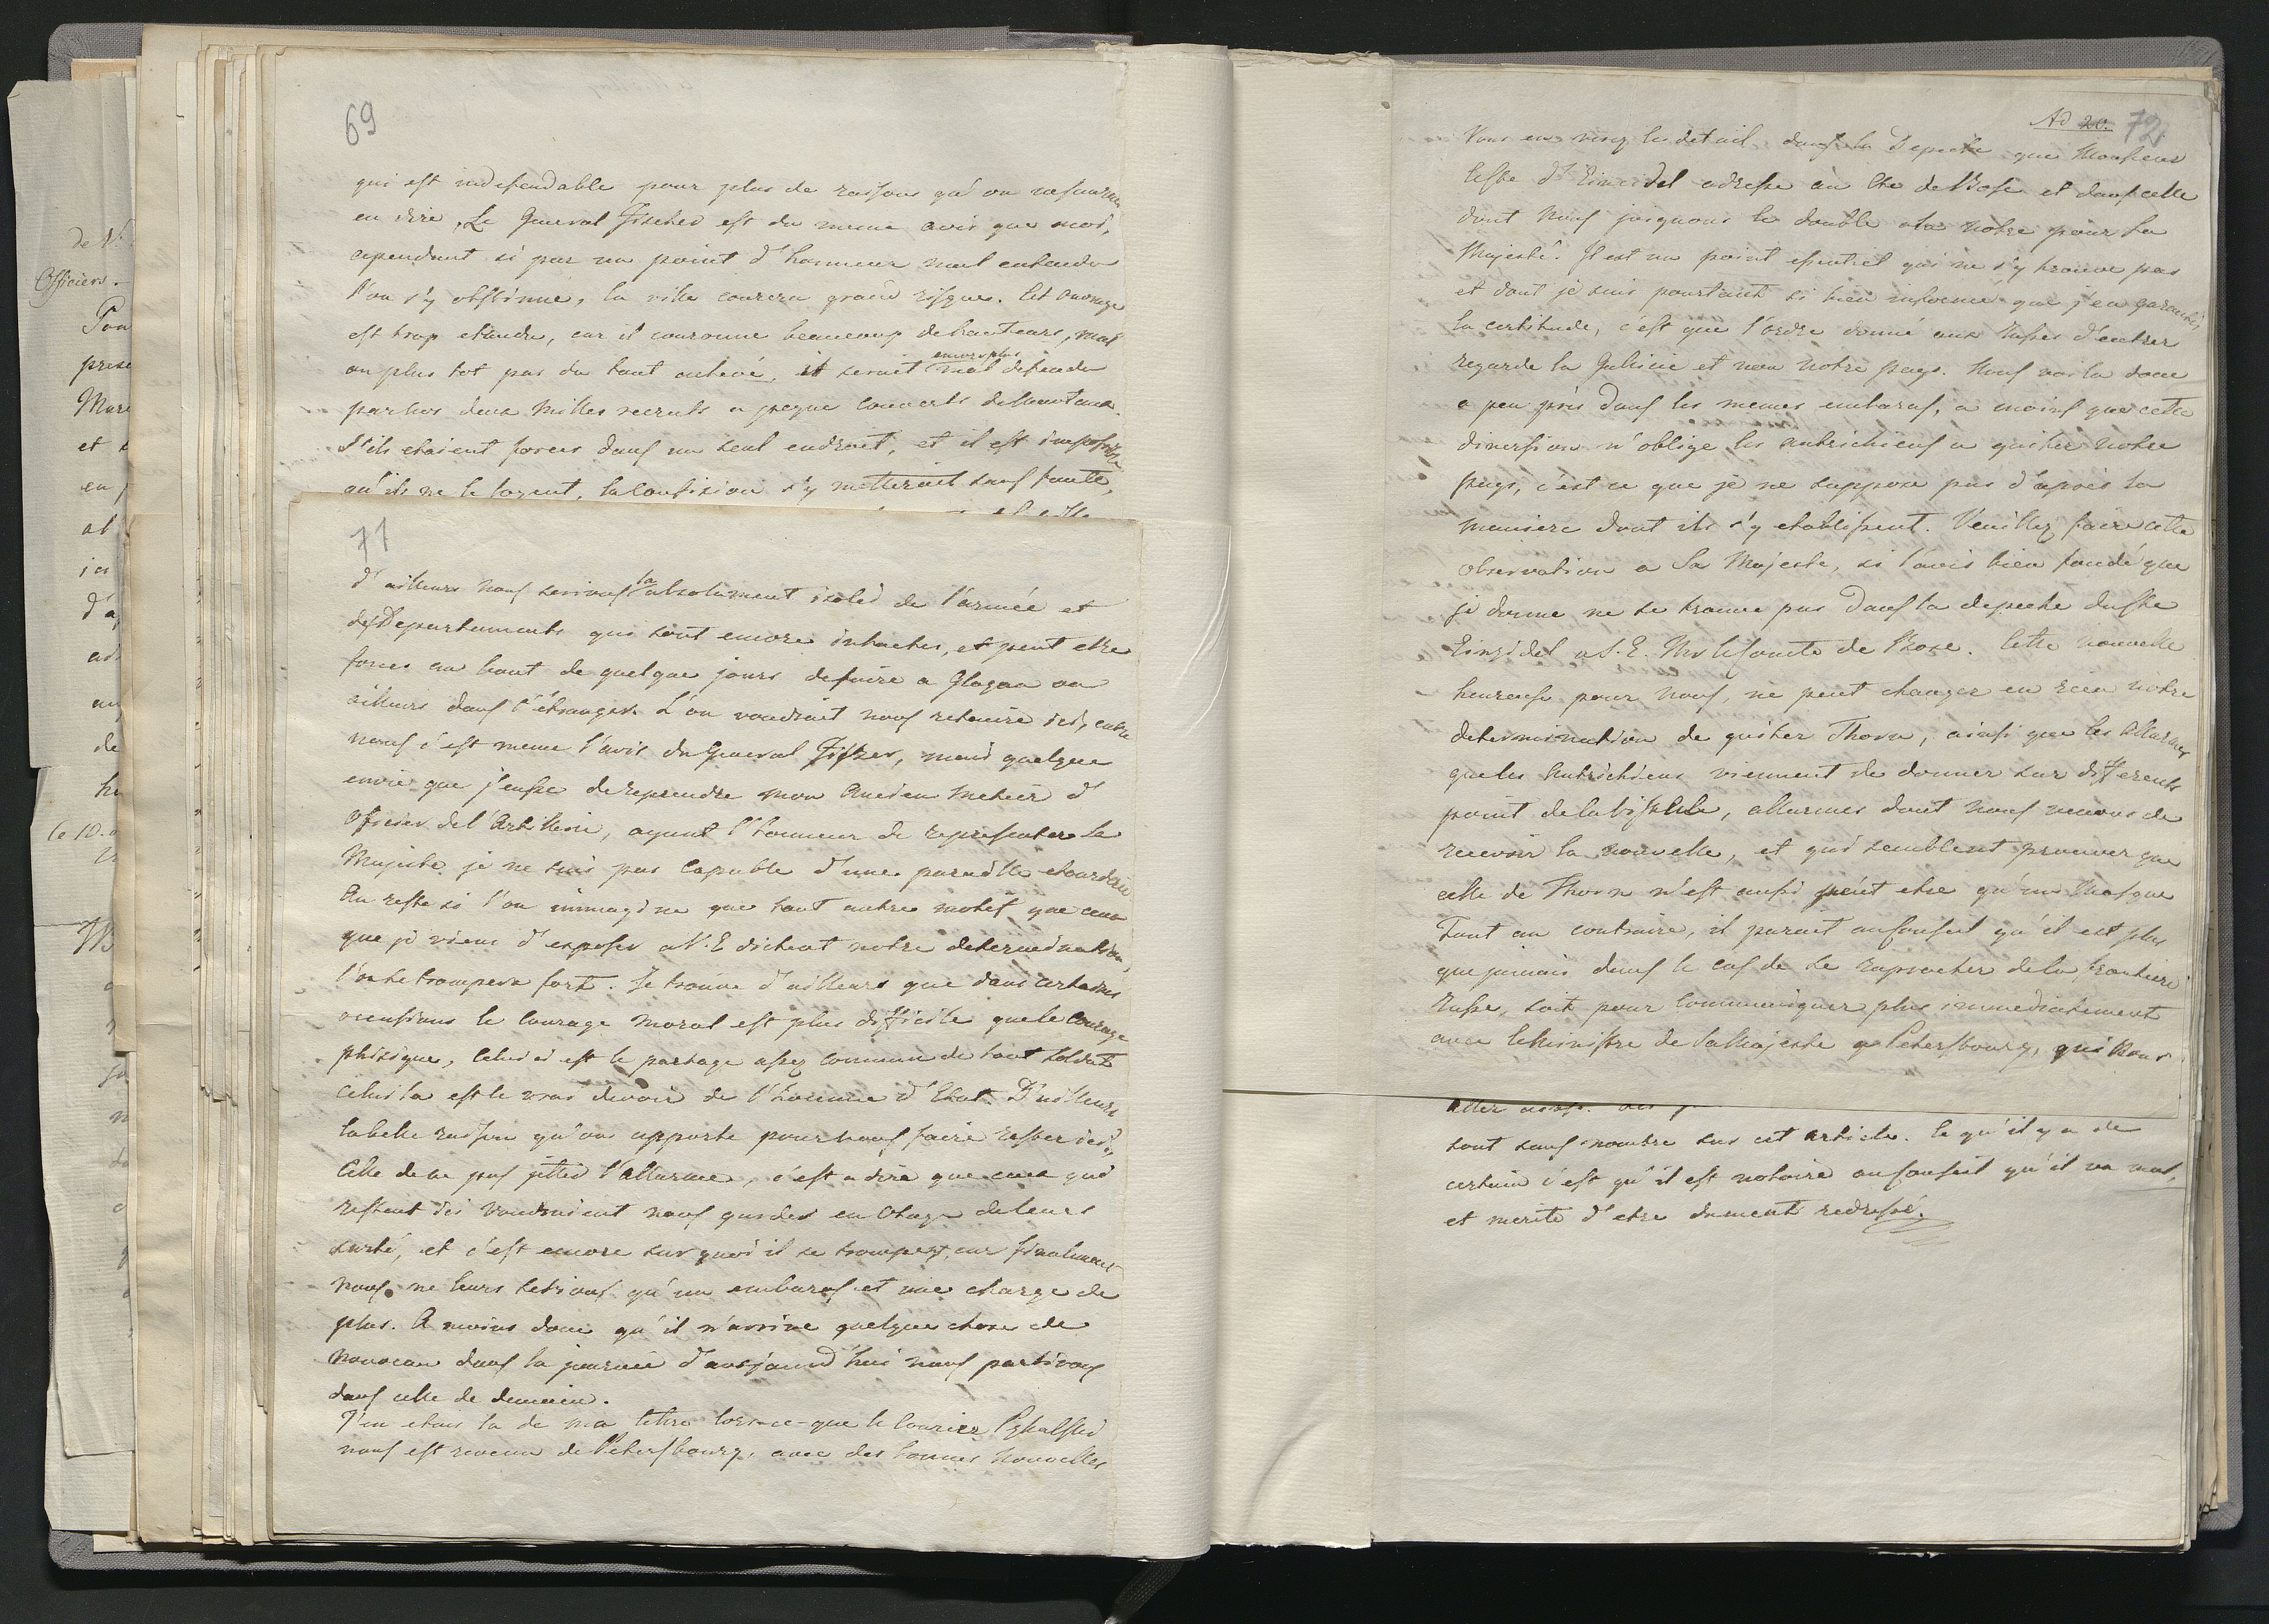 69
qui est indefendable pour plus de raisons qu'on ne sauroit
en dire. Le General Fischer est du meme avis que moi,
cependant si par un point d'honneur mal entendu
l'on s'y obstinne, la ville courera grand risque. Cet ouvrage
est trop etendu, car il couronne beaucoup de hauteurs, mal
ou plus tot pas du tout achevé, il seroit encore plus mal defendu
par les deux milles recruts a peque couverts de manteaux.
S'ils etaient forcés dans un seul endroit, et il est impossible
qu'ils ne le soyent, la confusion s'y metteroit sans faute,
71
d'ailleurs nous serions la absolument isolés de l'armée et
des Departements qui sont encore intactes, et peut etre
forcés au bout de quelque jours de fuire a Glogau ou
ailleurs dans l'étranger. L'on voudrait nous retenire ici, entre
nous c'est meme l'avis du General Fischer, mais quelque
envie que j'eusse de reprendre mon ancien metier d'
officier del Artillerie, ayant l'honneur de representer Sa
Majesté je ne suis pas capable d'une pareille etourderie
Au reste si l'on immagine que tout autre motif que ceux
que je viens d'exposer a V. E dictent notre determination,
l'on se trompera fort. Je trouve d'ailleurs que dans certaines
occasions le courage moral est plus difficile que le courage
phisique, celui ci est le partage assez commun de tout soldat
celui la est le vrai devoir de l'homme d'Etat. D'ailleurs
la belle raison qu'on apporte pour nous faire rester ici,
celle de ne pas jetter l'allarme, c'est a dire que ceux qui
restent ici voudroient nous garder en otage de leurs
sureté, et c'est encore sur quoi il se trompent, car finalement
nous ne leurs serions qu'un embaras et une charge de
plus. A moins donc qu'il n'arrive quelque chose de
nouveau dans la journée d'aujourd'hui nous partirons
dans celle de demain.
J'en etais la de ma lettre lors-ce-que le courier
nous est revenu de Petersbourg, avec des bonnes nouvelles
Ad 20. 72
Vous en verez le detail dans la Depeche que Monsieur
le Cte d'Einsidel adresse au Cte de Bose et dans celle
dont nous joignons le double a la notre pour Sa
Majesté. Il est un point essentiel qui ne s'y trouve pas
et dont je suis pourtant si bien informé que j'en garantis
la certitude, c'est que l'ordre donné aux Russes d'entrer
regarde la Galicie et non notre pays. Nous voila donc
a peu près dans les memes embaras, a moins que cette
diversion n'oblige les autrichiens a quiter notre
pays, c'est ce que je ne suppose pas d'après la
maniere dont ils s'y etablissent. Veuillez faire cette
observation a Sa Majesté, si l'avis bien fondé que
je donne ne se trouve pas dans la depeche du Cte
Einsidel a S. E. Mr le Comte de Bose. Cette nouvelle
heureuse pour nous, ne peut changer en rien notre
determination de quiter Thorn, ainsi que les allarmes
que les Autrichiens viennent de donner sur differents
point de la Vistule, allarmes dont nous venons de
recevoir la nouvelle, et qui semblent prouver que
celle de Thorn n'est aussi peut etre qu'un masque
Tout au contraire, il parait au conseil qu'il est plus
que jamais dans le cas de se raprocher de la frontiere
Russe, soit pour communiquer plus immediatement
avec le Ministre de Sa Majesté a Petersbourg, qui nous
sont sans nombre sur cet article. Ce qu'il y a de
certain c'est qu'il est notoire au conseil qu'il va mal,
et merite d'etre dument redressé.
de V.
Officiers.
le 10.